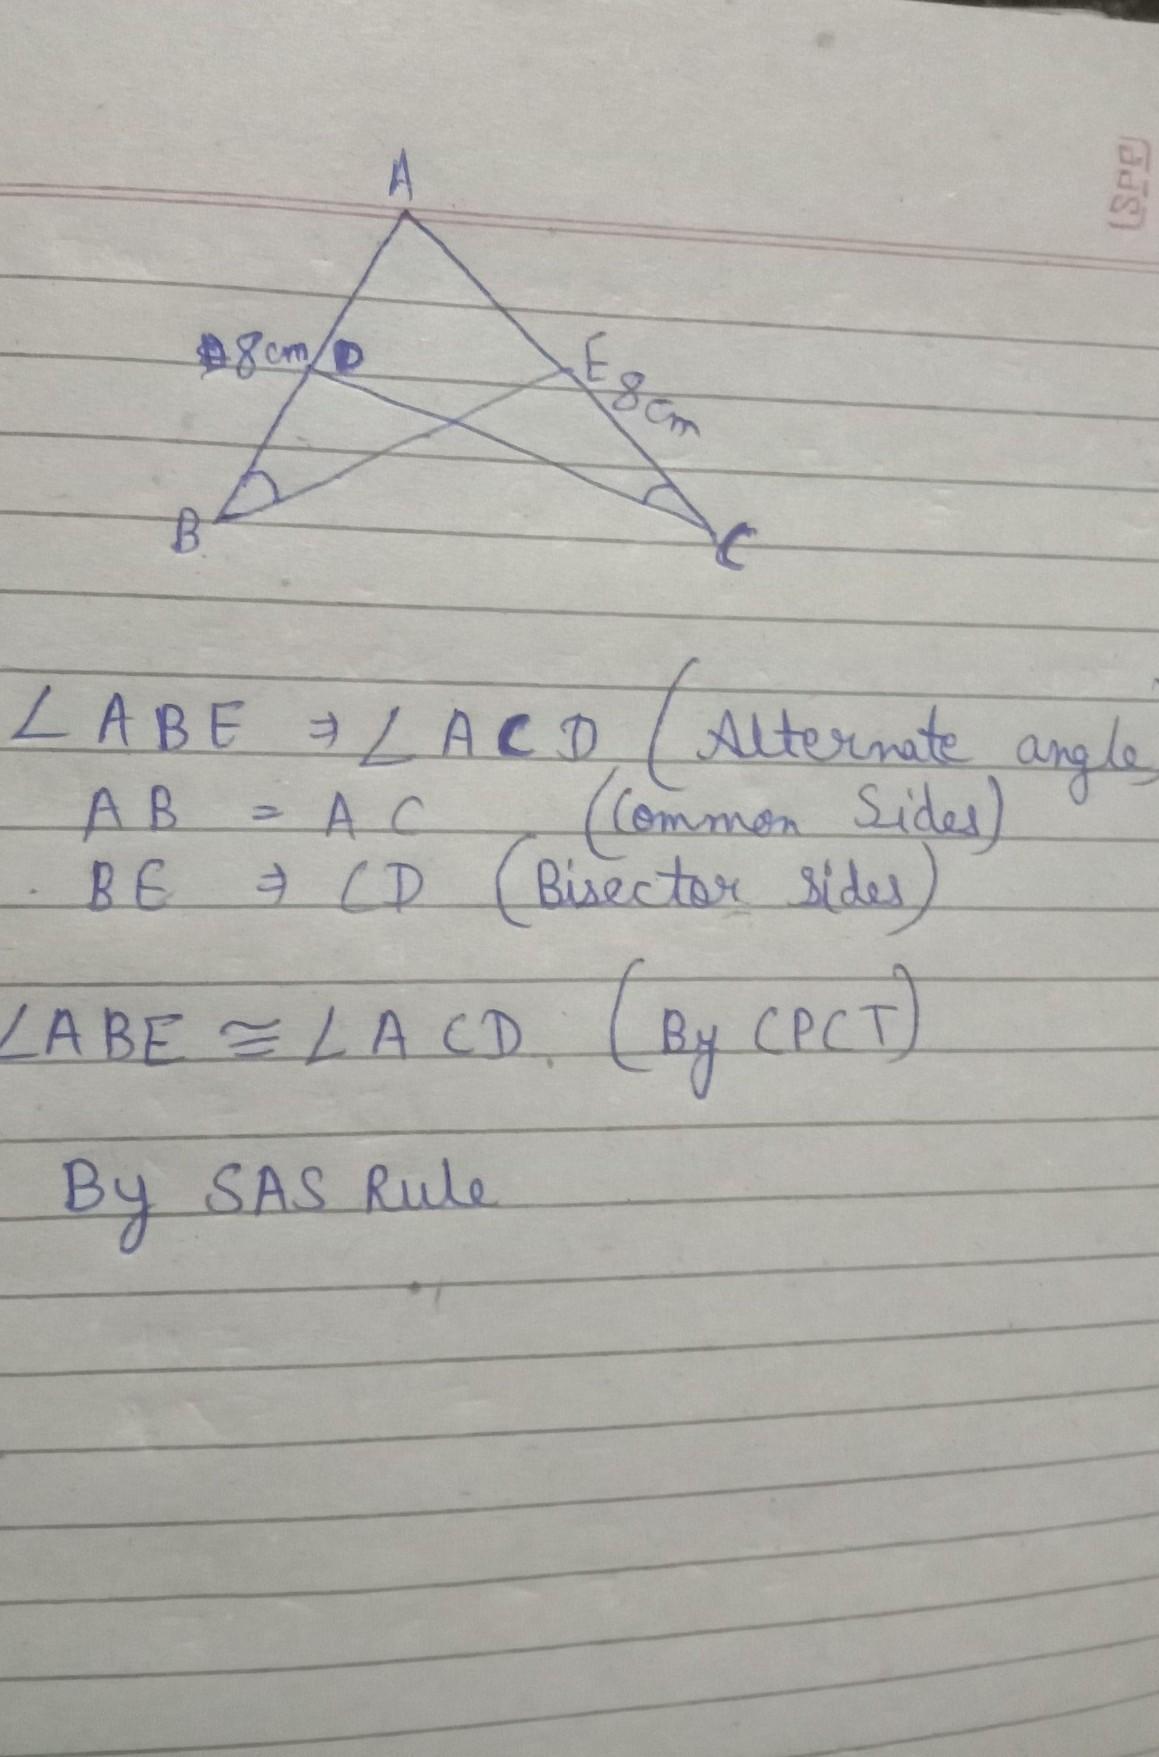 SPP
A
8cm D
E 8cm
B
C
∠ABE ⇒ ∠ACD (Alternate angle
AB = AC (Common Sides)
BE ⇒ CD (Bisector sides)
∠ABE ≅ ∠ACD. (By CPCT)
By SAS Rule